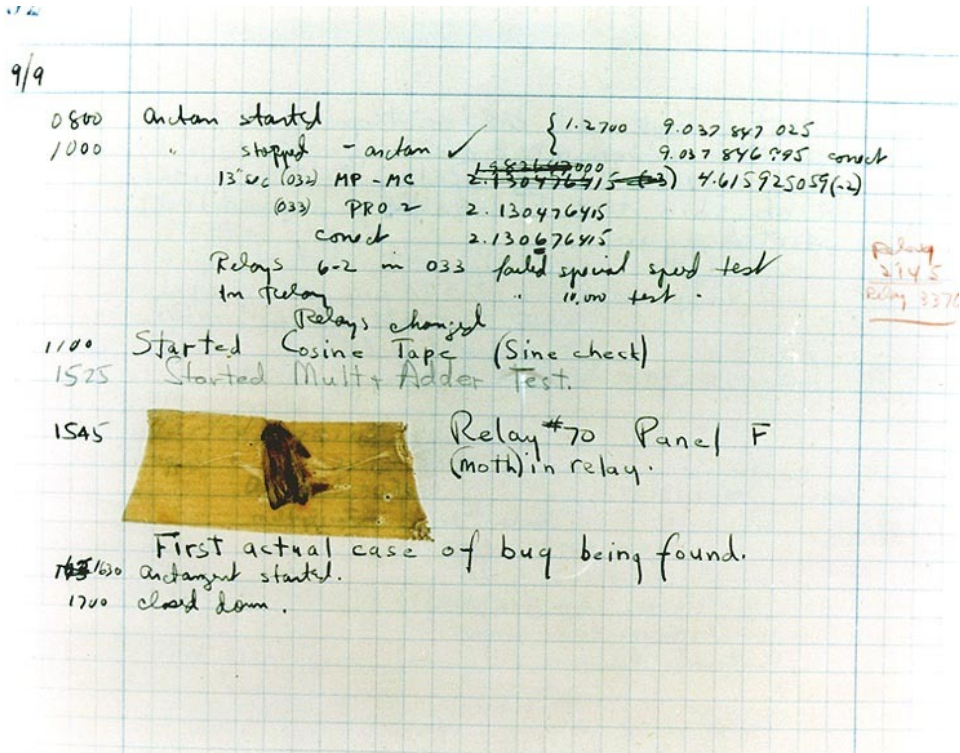 9/9
0800 Antan started { 1.2700 9.037 847 025
1000 " stopped - antan ✓ 9.037 846 995 conect
13" uc (032) MP - MC 2.130476415 (-3) 4.615925059(-2)
(033) PRO 2 2.130476415
conect 2.130676415
Relays 6-2 in 033 failed special speed test
In Relay " 10.000 test .
Relays changed
Relay
2145
Relay 3370
1100 Started Cosine Tape (Sine check)
1525 Started Mult + Adder Test.
1545 Relay #70 Panel F
(moth) in relay.
First actual case of bug being found.
1630 antangent started.
1700 closed down .